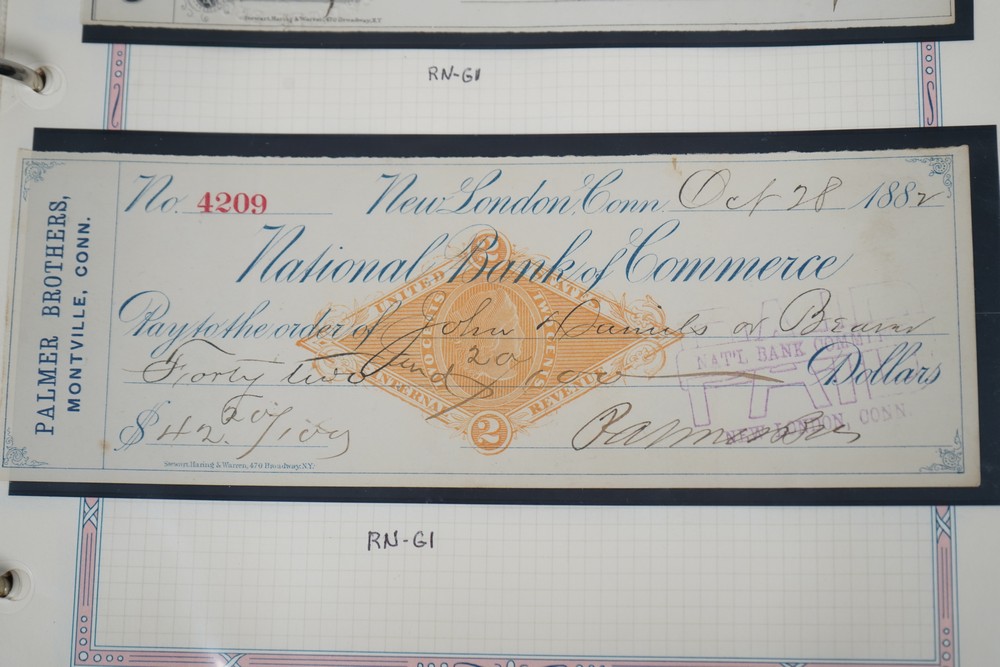 Stewart, Haring & Warren, 470 Broadway, N.Y.
RN-G1
PALMER BROTHERS,
MONTVILLE, CONN.
No. 4209 New London, Conn. Oct 28 1882
National Bank of Commerce
UNITED STATES
TWO CENTS
INTERNAL REVENUE
2
2
Pay to the order of John Daniels or Bearer
Forty two and 20/100 Dollars
$42.20/100 Palmer Bros
PAID
NAT'L BANK COMMERCE
NEW LONDON, CONN.
Stewart, Haring & Warren, 470 Broadway, N.Y.
RN-G1